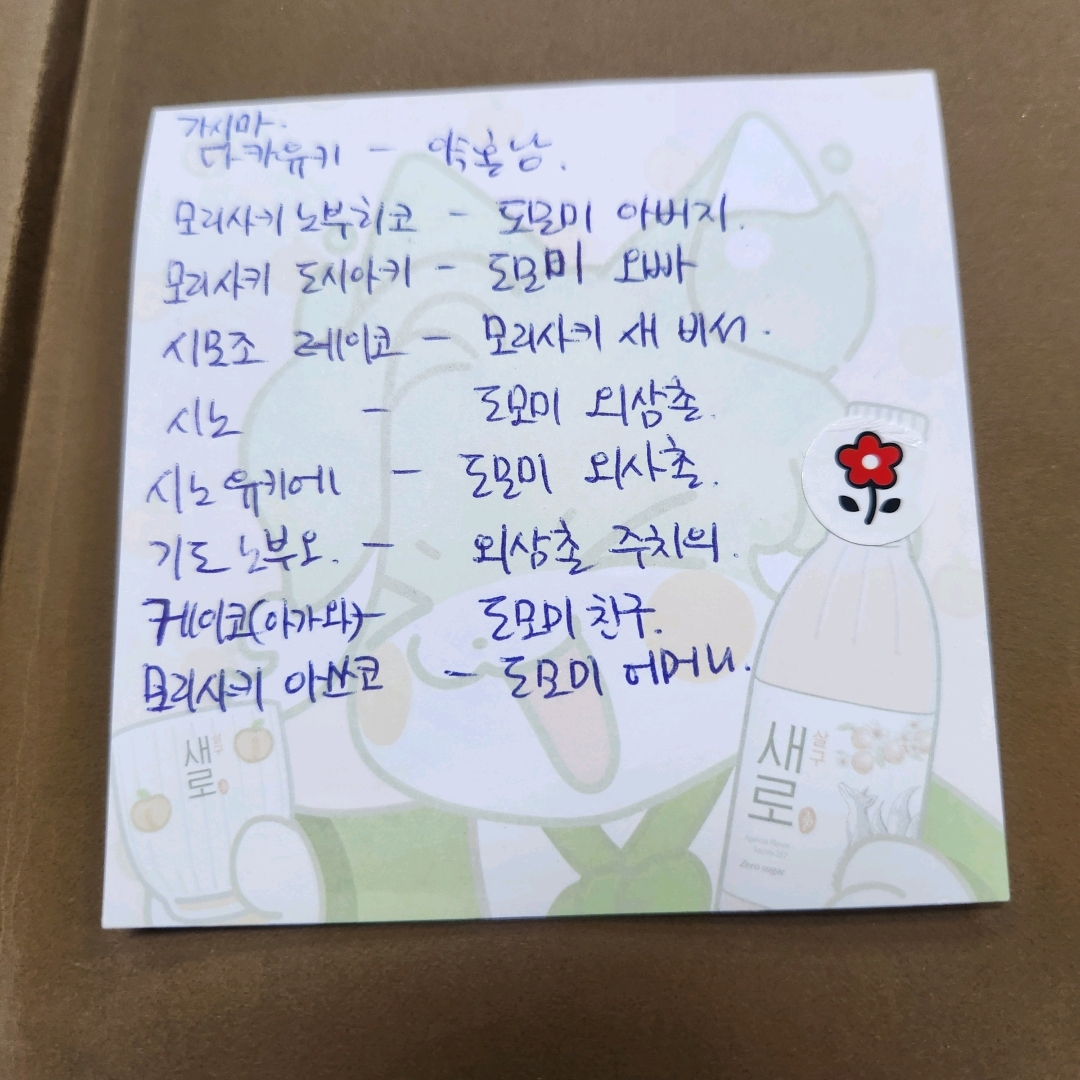 가시마.
다카유키 - 약혼남.
모리사키 노부히코 - 도모미 아버지.
모리사키 도시아키 - 도모미 오빠
시모조 레이코 - 모리사키 새 비서.
시노 - 도모미 외삼촌.
시노 유키에 - 도모미 외사촌.
기도 노부오. - 외삼촌 주치의.
케이코(아가와)- 도모미 친구.
모리사키 아쓰코 - 도모미 어머니.
새로
새로
살구
Zero sugar